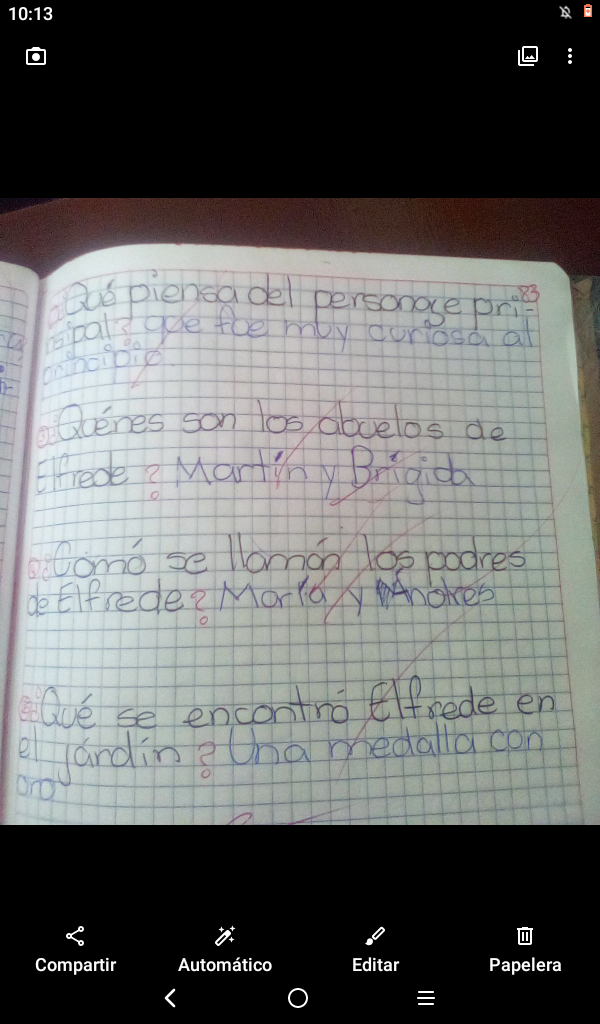 10:13
83
¿Qué piensa del personage prin-
sipal? que foe muy curiosa al
principio.
¿Quénes son los abuelos de
Elfrede? Martín y Brigida
¿Comó se llamán los padres
de Elfrede? María y Andres
¿Qué se encontró Elfrede en
el járdín? Una medalla con
oro
Compartir
Automático
Editar
Papelera